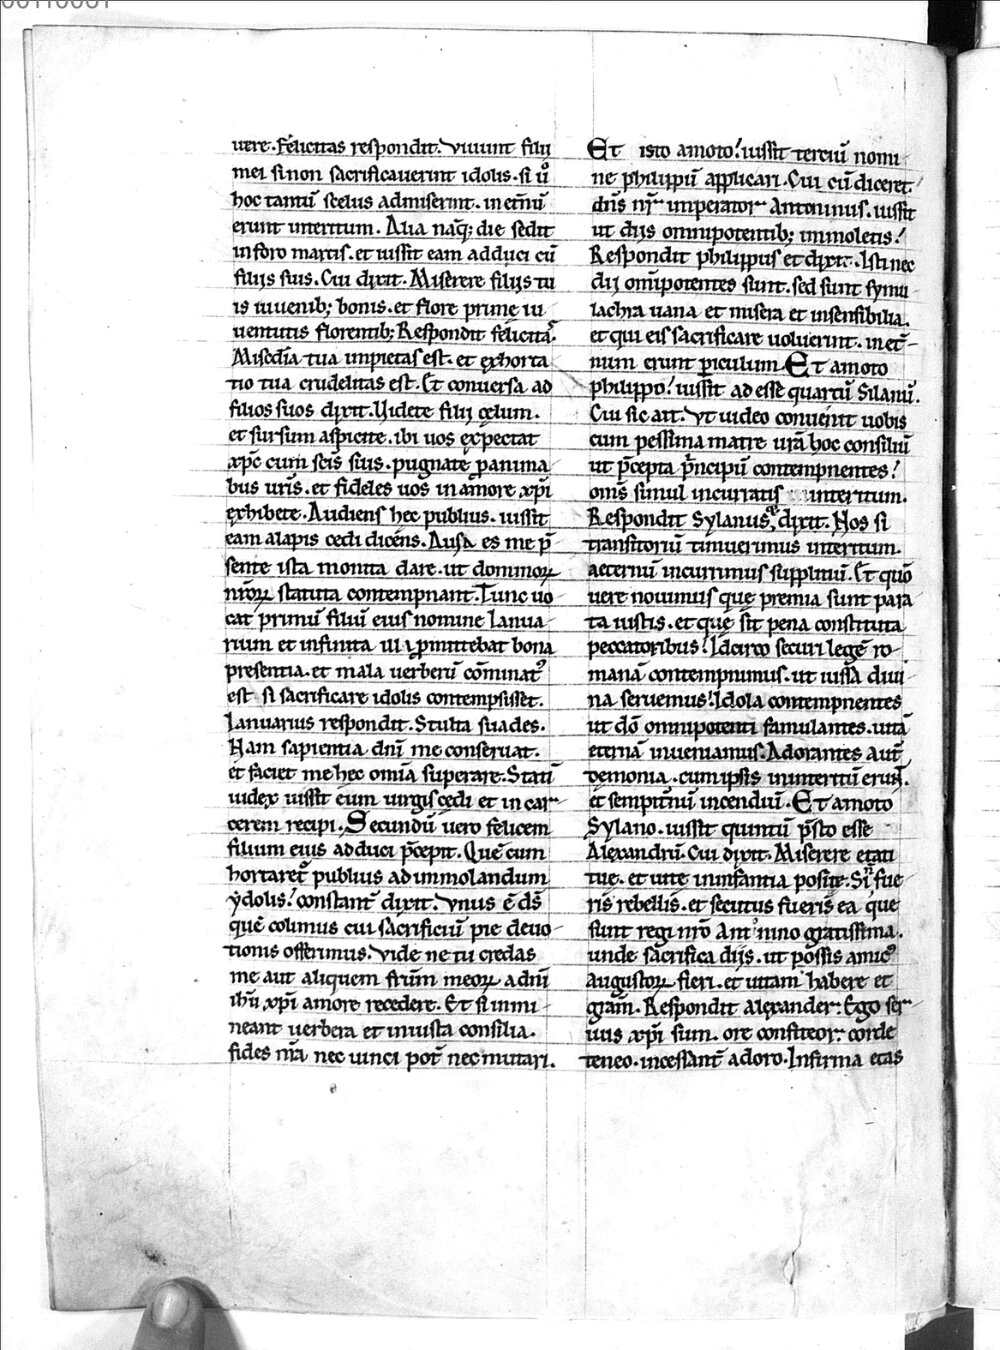 uere. Felicitas respondit. Viuunt filii
mei si non sacrificauerint idolis. si u͛o
hoc tantū scelus admiserint. in et͛nū
erunt interitum. Alia naq; die sedit
in foro martis. et iussit eam adduci cū
filiis suis. Cui dixit. Miserere filiis tu
is iuuenib; bonis. et flore prime iu
uentutis florentib; Respondit felicita᷒.
Mis͛cdīa tua impietas est. et exhorta
tio tua crudelitas est. Et conuersa ad
filios suos dixit. Videte filii celum.
et sursum aspicite. ibi uos expectat
xp̄c cum sc̄is suis. pugnate ꝑ anima
bus ur̄is. et fideles uos in amore xp̄i
exhibete. Audiens hec publius. iussit
eam alapis cedi dicens. Ausa es me p̄
sente ista monita dare. ut dominoꝝ
nr̄oꝝ statuta contempnant. Tunc uo
cat primū filiū eius nomine Ianua
rium et infinita illi ꝓmittebat bona
presentia. et mala uerberū cōminat᷒
est si sacrificare idolis contempsisset.
Ianuarius respondit. Stulta suades.
Nam sapientia dnī me conseruat.
et faciet me hec omīa superare. Statī
iudex iussit eum uirgis cedi et in car
cerem recipi. Secundū uero felicem
filium eius adduci p̄cepit. Quē cum
hortaret᷒ publius ad immolandum
ydolis! constant͛ dixit. Vnus ē d̄s
quē colimus cui sacrificiū pie deuo
tionis offerimus. Vide ne tu credas
me aut aliquem fr̄um meoꝝ a dnī
ih̄u xp̄i amore recedere. Et si immi
neant uerbera et iniusta consilia.
fides nr̄a nec uinci pot͛ nec mutari.
Et isto amoto! iussit terciū nomi
ne philippū applicari. Cui cū diceret
dn̄s nr̄ imperator Antoninus. iussit
ut diis omnipotentib; immoletis!
Respondit philippus et dixit. Isti nec
dii omīpotentes sunt. sed sunt symu
lachra uana et misera et insensibilia.
et qui eis sacrificare uoluerint. in et͛
num erunt ꝑiculum. Et amoto
philippo! iussit adesse quartū Silanū.
Cui sic ait. Vt uideo conuenit uobis
cum pessima matre ur̄a hoc consiliū
ut p̄cepta p͛ncipū contempnentes!
om̄s simul incurratis interitum.
Respondit Sylanus, dixit. Nos si
transitoriū timuerimus interitum.
aeternū incurrimus suppliciū. Et quō
uere nouimus que premia sunt para
ta iustis. et que sit pena constituta
peccatoribus! Idcirco securi legē ro
manā contempnimus. ut iussa diui
na seruemus! Idola contempnentes
ut dō omnipotenti famulantes. uitā
eternā inueniamus. Adorantes aut͛
demonia. cum ipsis in interitū erun͛t.
et sempit͛nū incendiū. Et amoto
Sylano. iussit quintū p̄sto esse
Alexandrū. Cui dixit. Miserere etati
tue. et uite in infantia posite. Si n̄ fue
ris rebellis. et secutus fueris ea que
sunt regi nr̄o Antonino gratissima.
unde sacrifica diis. ut possis amic᷒
augustoꝝ fieri. et uitam habere et
gr̄am. Respondit alexander. Ego ser
uus xp̄i sum. ore confiteor. corde
teneo. incessant͛ adoro. Infirma etas